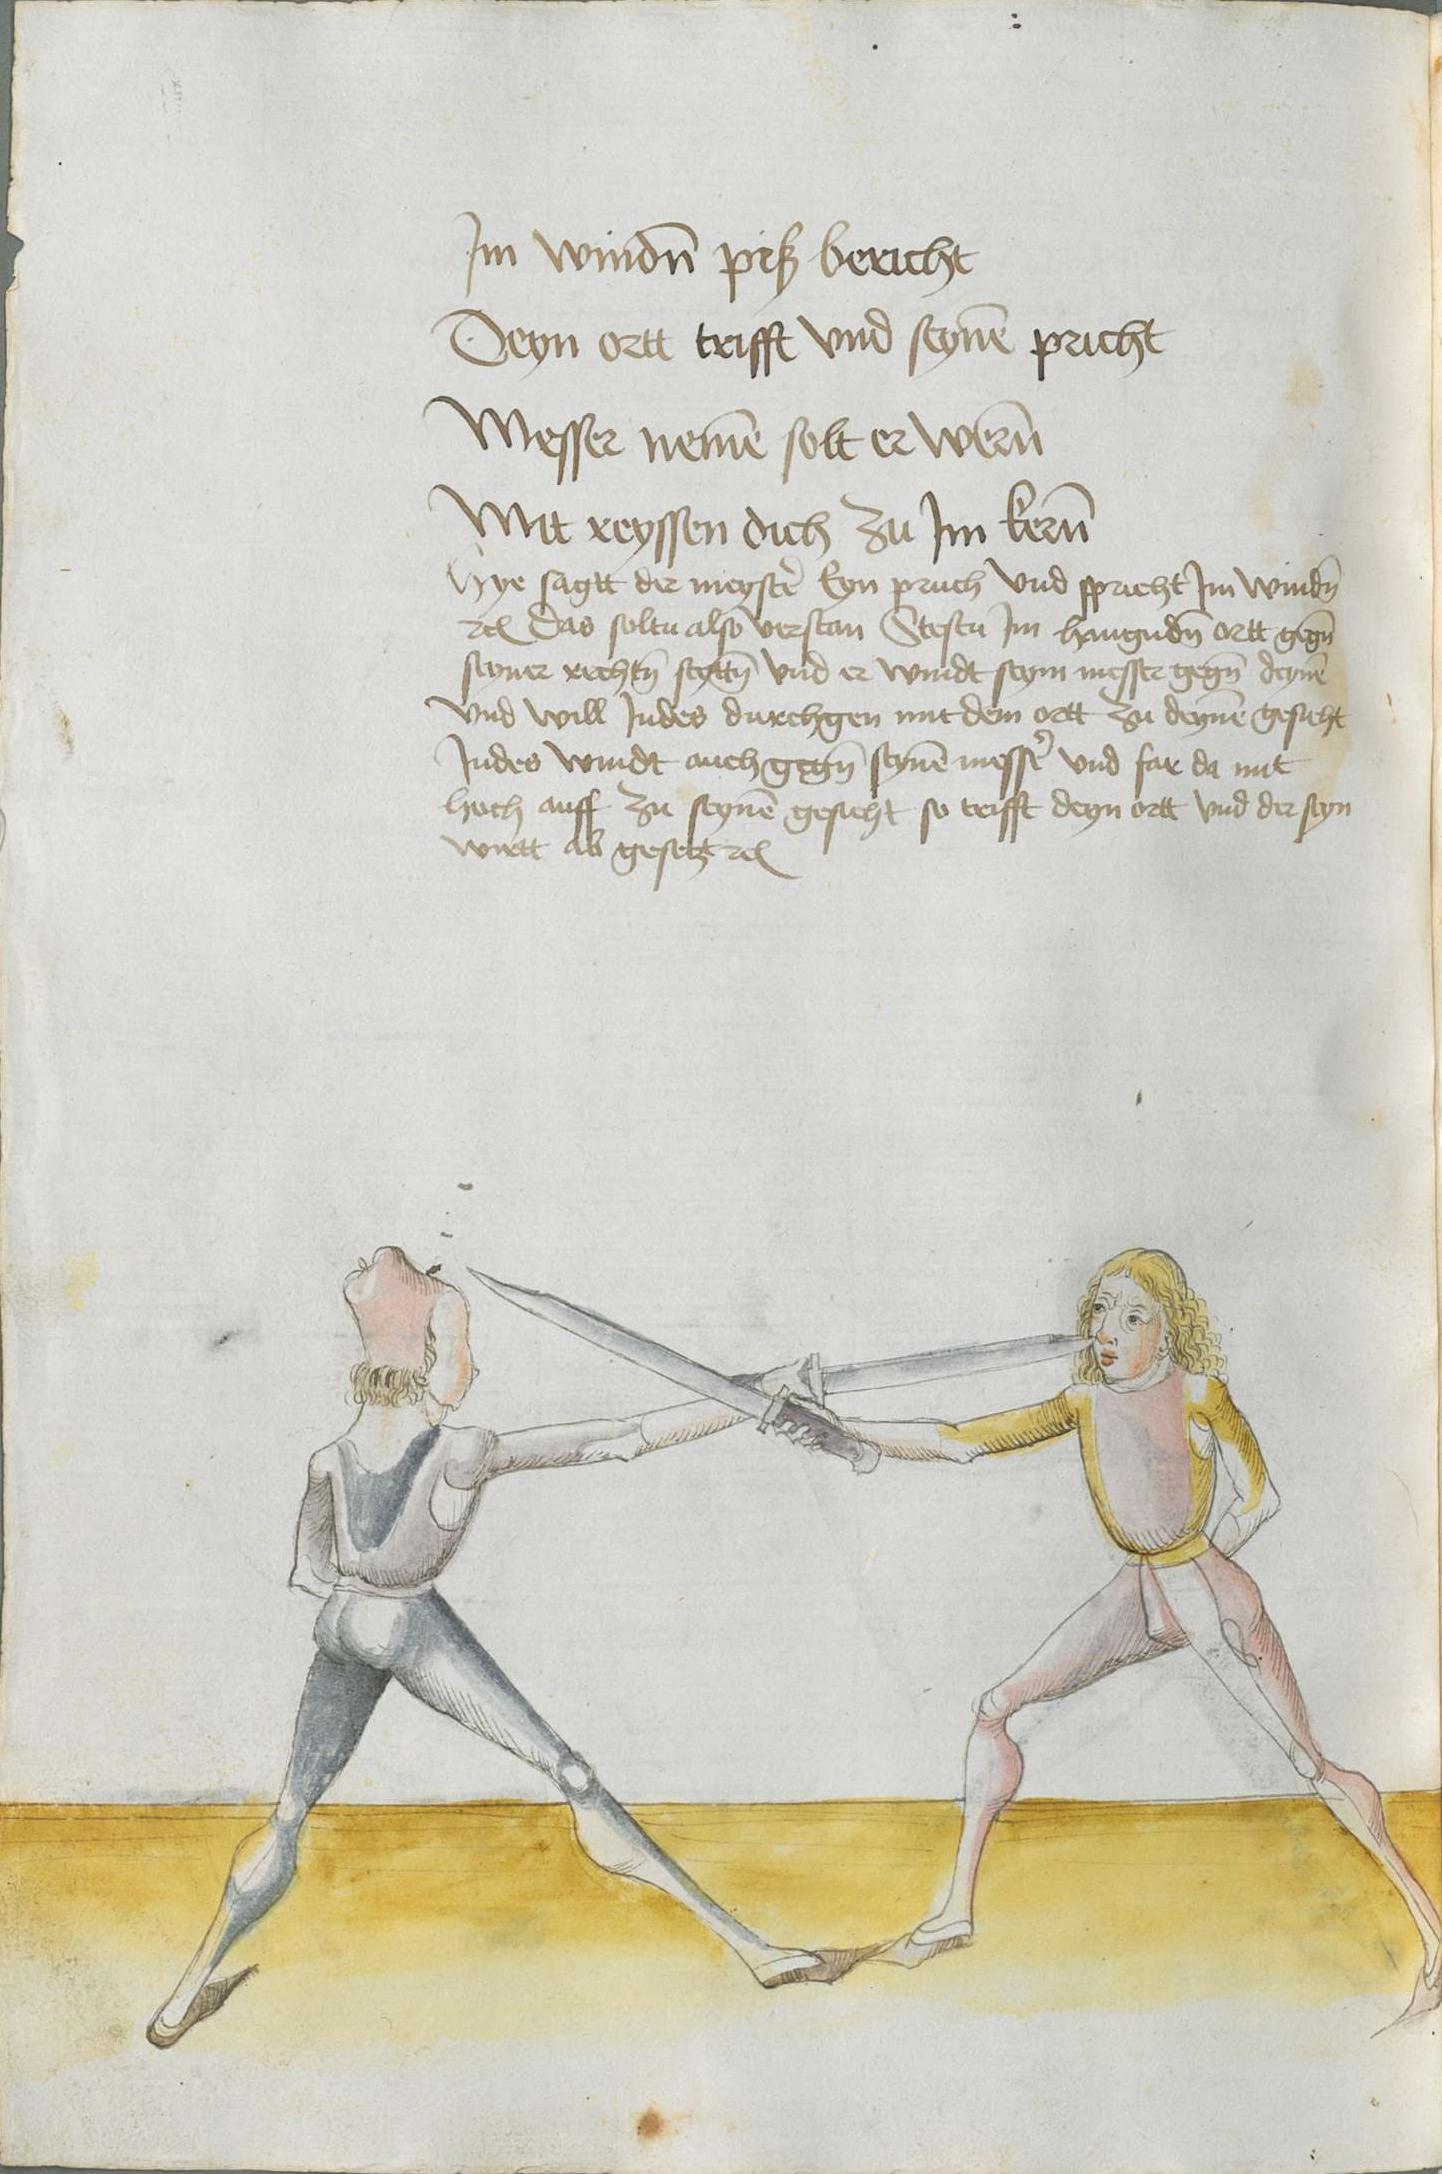 Im windn̄ piß bericht
Deyn ortt trifft vnd seynē pricht
Messer nemē solt er wern̄
Mit reyssen dich zu Im kern̄
Hye sagtt der meyster̄ Eyn pruch vnd spricht Im windn̄
rc̄ Das soltu also verstan Stestu Im hangndn̄ ortt gegn̄
seyner rechtn̄ seyttn̄ vnd er windt seyn messer gegn̄ deynē
vnd will Indes durchgen mit dem ortt zu deynē gesicht
Indes windt auch gegn̄ seynē messer̄ vnd far da mit
hoch auff zu seynē gesicht so trifft deyn ortt vnd der seyn
wirtt ab gesetzt rc̄